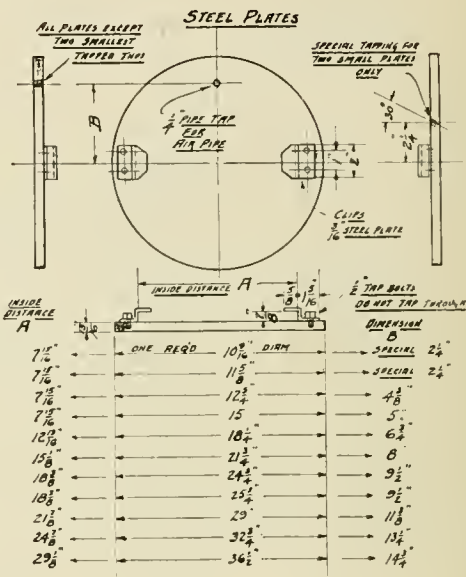 STEEL PLATES
ALL PLATES EXCEPT
TWO SMALLEST
TAPPED THUS
SPECIAL TAPPING FOR
TWO SMALL PLATES
ONLY
30°
B
1/4" PIPE TAP
FOR
AIR PIPE
1"
2"
2 1/4"
CLIPS
3/16" STEEL PLATE
INSIDE DISTANCE A
5/8"
1 5/16"
1/2" TAP BOLTS
DO NOT TAP THROUGH
INSIDE
DISTANCE
A
DIMENSION
B
ONE REQ'D
DIAM
7 15/16"
SPECIAL 2 1/4"
7 15/16" 11 5/8" SPECIAL 2 1/4"
7 15/16" 12 3/4" 4 3/8"
7 15/16" 15 5"
18 1/4" 6 3/4"
15 1/8" 21 3/4" 8"
18 3/8" 24 3/4" 9 1/2"
18 3/8" 25 3/4" 9 1/2"
21 3/8" 29" 11 3/8"
24 3/8" 32 3/4" 13 1/4"
29 1/8" 36 1/2" 14 3/4"